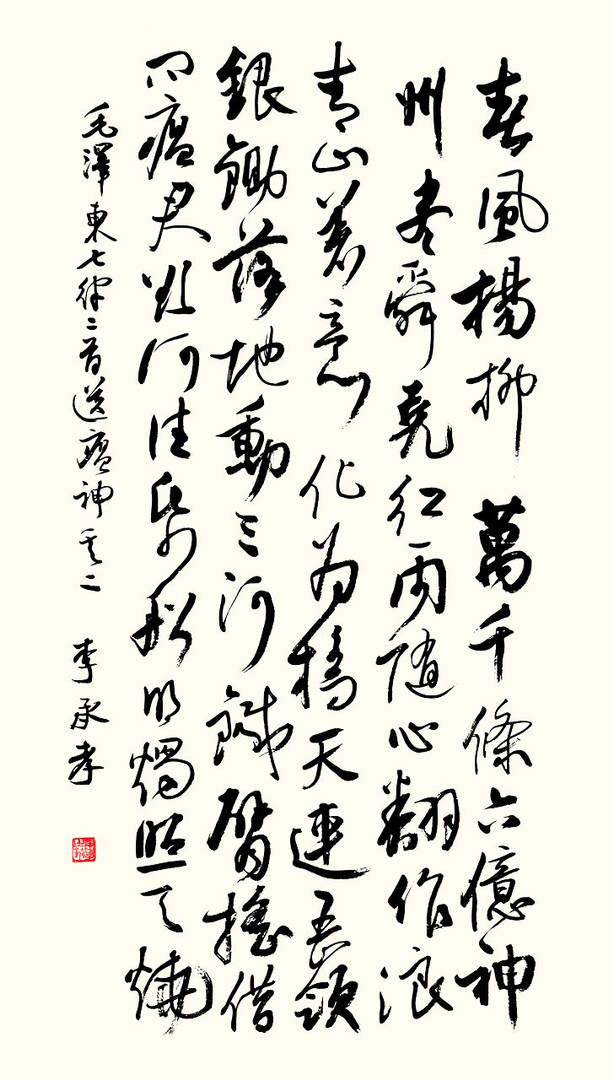 春風楊柳萬千條六億神
州尽舜堯紅雨隨心翻作浪
青山着意化为橋天連五嶺
銀鋤落地動三河鐵臂搖借
问瘟君欲何往紙船明燭照天燒
毛澤東七律二首送瘟神其二 李承孝